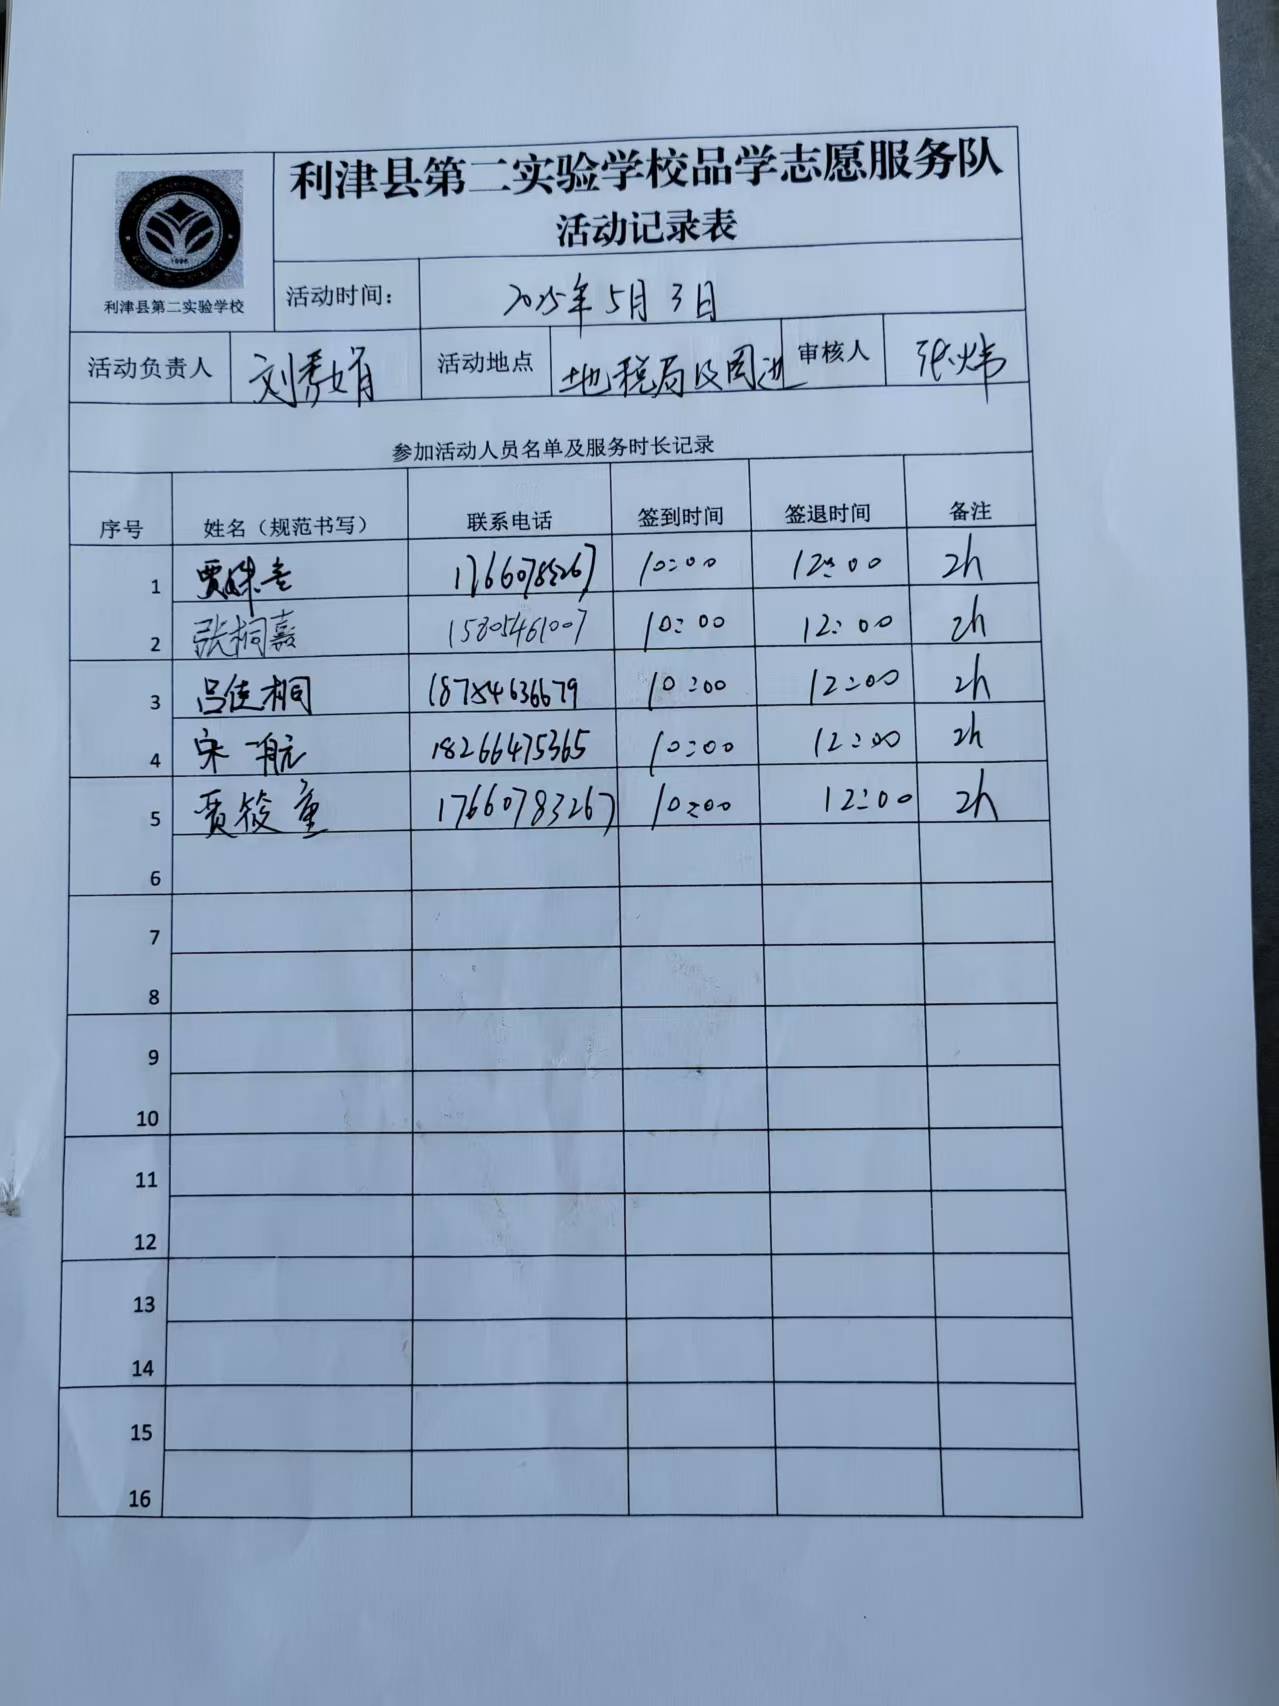 利津县第二实验学校品学志愿服务队
活动记录表
1996
利津县第二实验学校
活动时间： 2025年5月3日
活动负责人 刘秀娟 活动地点 地税局及周边 审核人 张炜
参加活动人员名单及服务时长记录
序号 姓名（规范书写） 联系电话 签到时间 签退时间 备注
1 贾 10:00 12:00 2h
2 张桐嘉 15805461007 10:00 12:00 2h
3 吕佳桐 18754636679 10:00 12:00 2h
4 宋一航 18266475365 10:00 12:00 2h
5 贾筱童 17660783267 10:00 12:00 2h
6
7
8
9
10
11
12
13
14
15
16